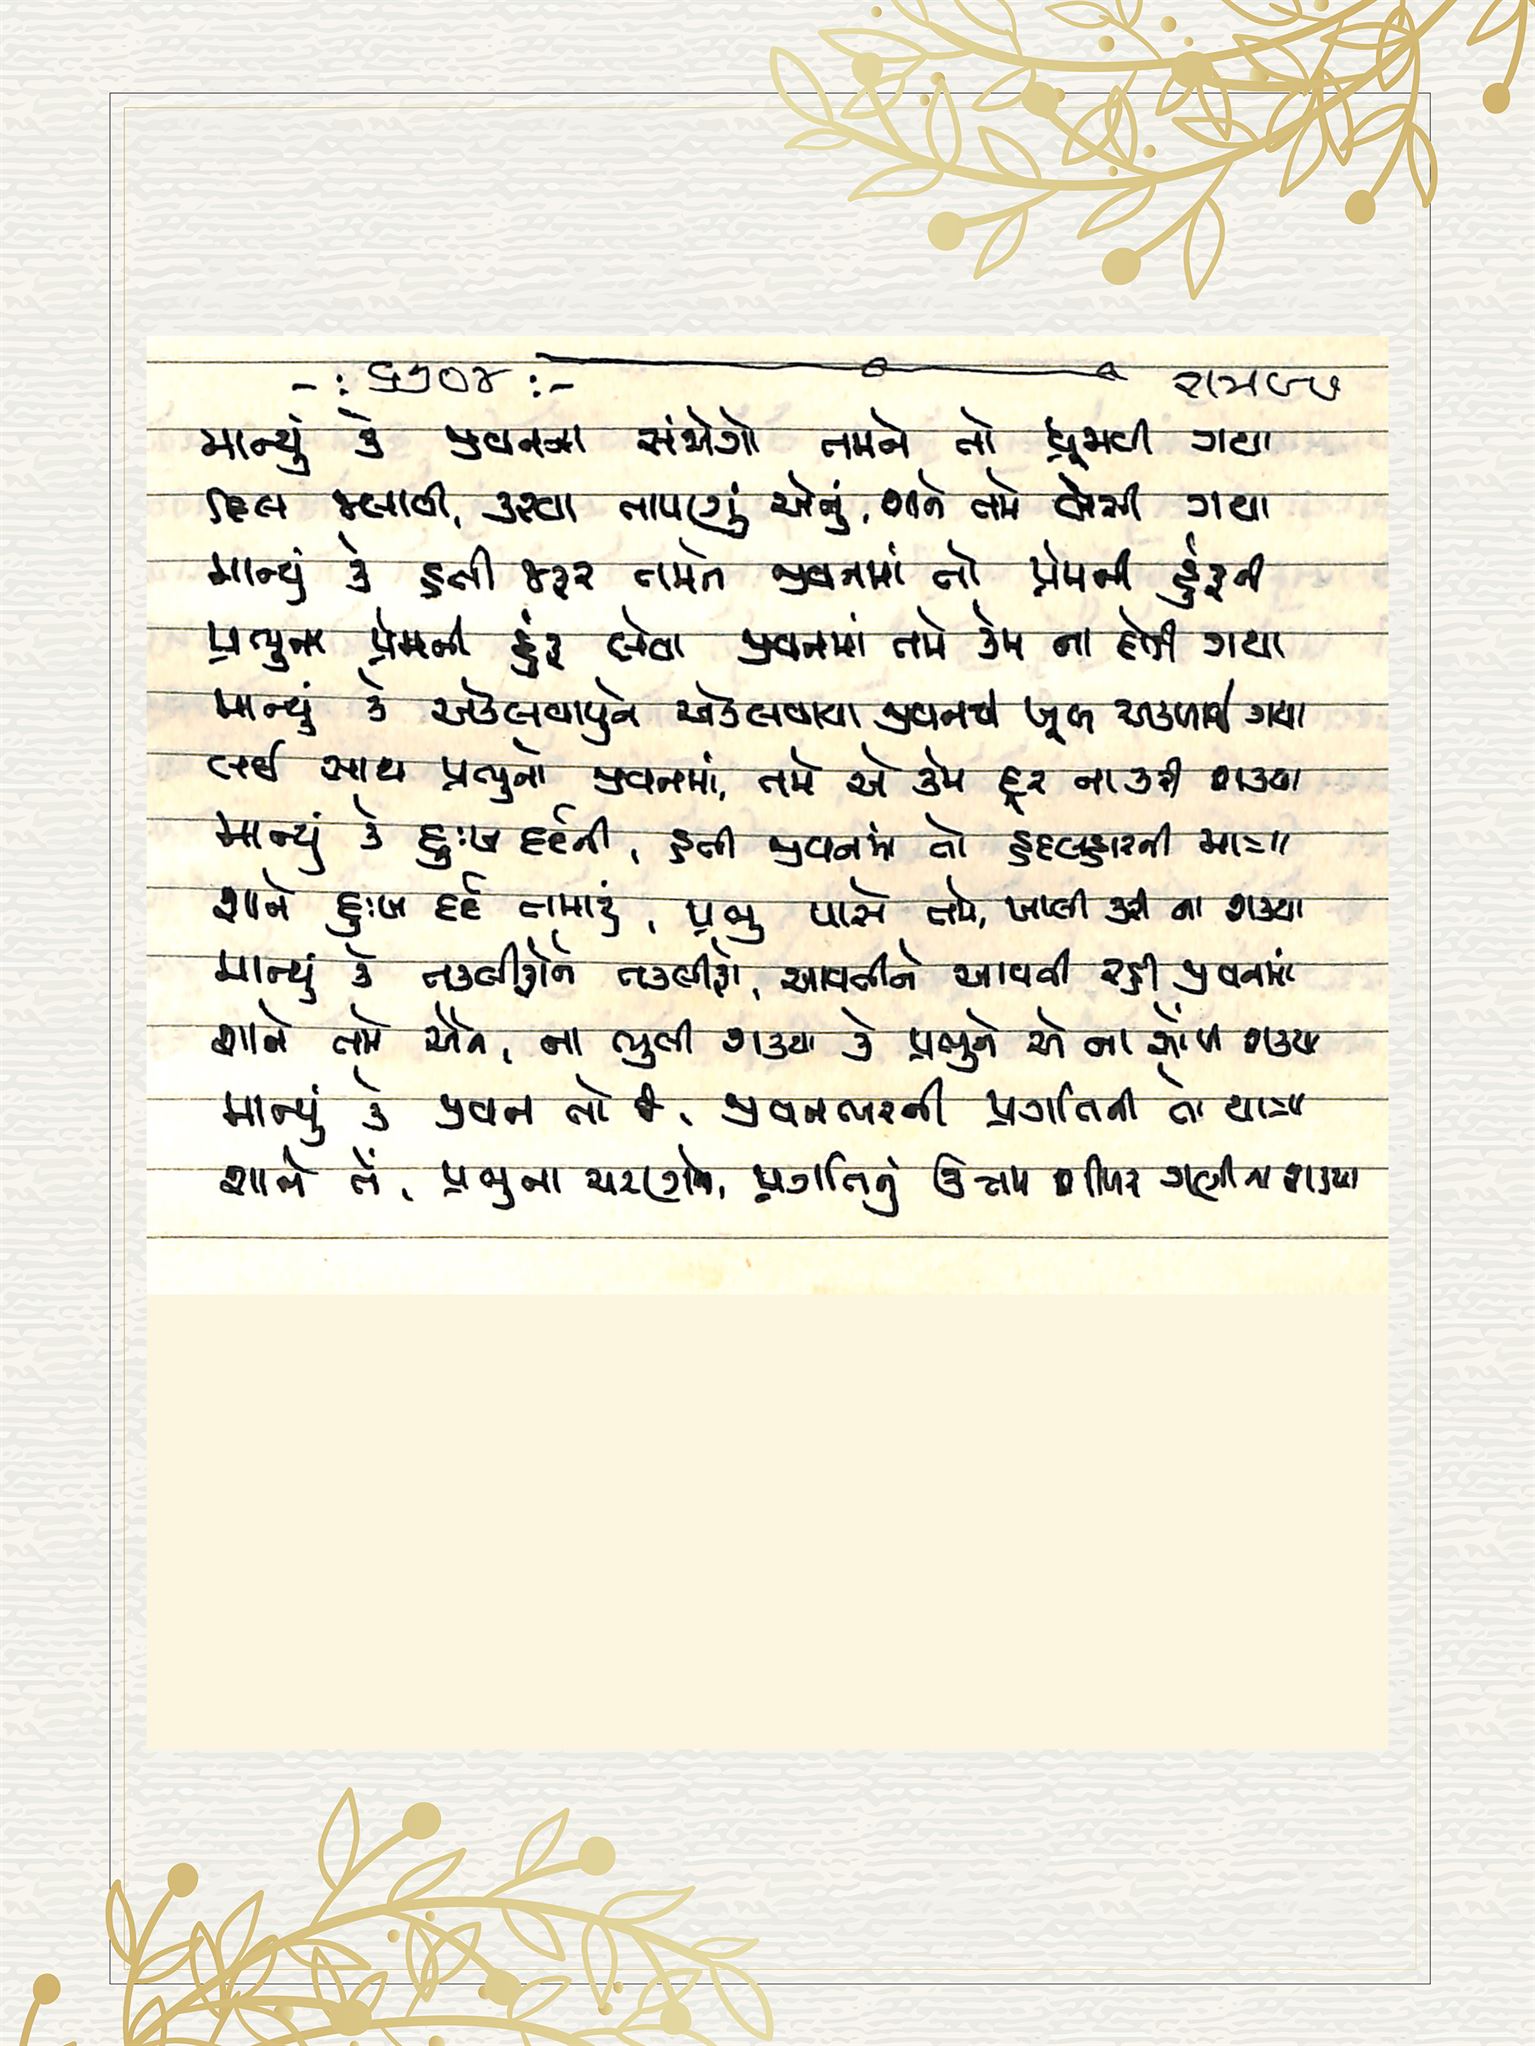 -: ૬૩૦૪ :-
માન્યું કે જીવનના સંજોગો તમને તો ધ્રૂજાવી ગયા
દિલ જલાવી, કરવા તાપણું એનું, શાને તમે બેસી ગયા
માન્યું કે હતી જરૂર તમને જીવનમાં તો પ્રેમની હૂંફની
પ્રભુના પ્રેમની હૂંફ લેવા જીવનમાં તમે કેમ ના દોડી ગયા
માન્યું કે એકલવાયુને એકલવાયા જીવનથી ખૂબ અકળાઈ ગયા
લઈ સાથ પ્રભુનો જીવનમાં, તમે એ કેમ દૂર ના કરી શક્યા
માન્યું કે દુઃખ દર્દની, હતી જીવનમાં તો હદબહારની માત્રા
શાને દુઃખ દર્દ તમારું, પ્રભુ પાસે તમે, ખાલી કરી ના શક્યા
માન્યું કે તકલીફોને તકલીફો, આવતીને આવતી રહી જીવનમાં
શાને તમે એને, ના ભુલી શક્યા કે પ્રભુને એ ના સોંપી શક્યા
માન્યું કે જીવન તો છે, જીવનભરની પ્રગતિની તો યાત્રા
શાને તેં, પ્રભુના ચરણને, પ્રગતિનું ઉત્તમ શીખર ગણી ના શક્યા